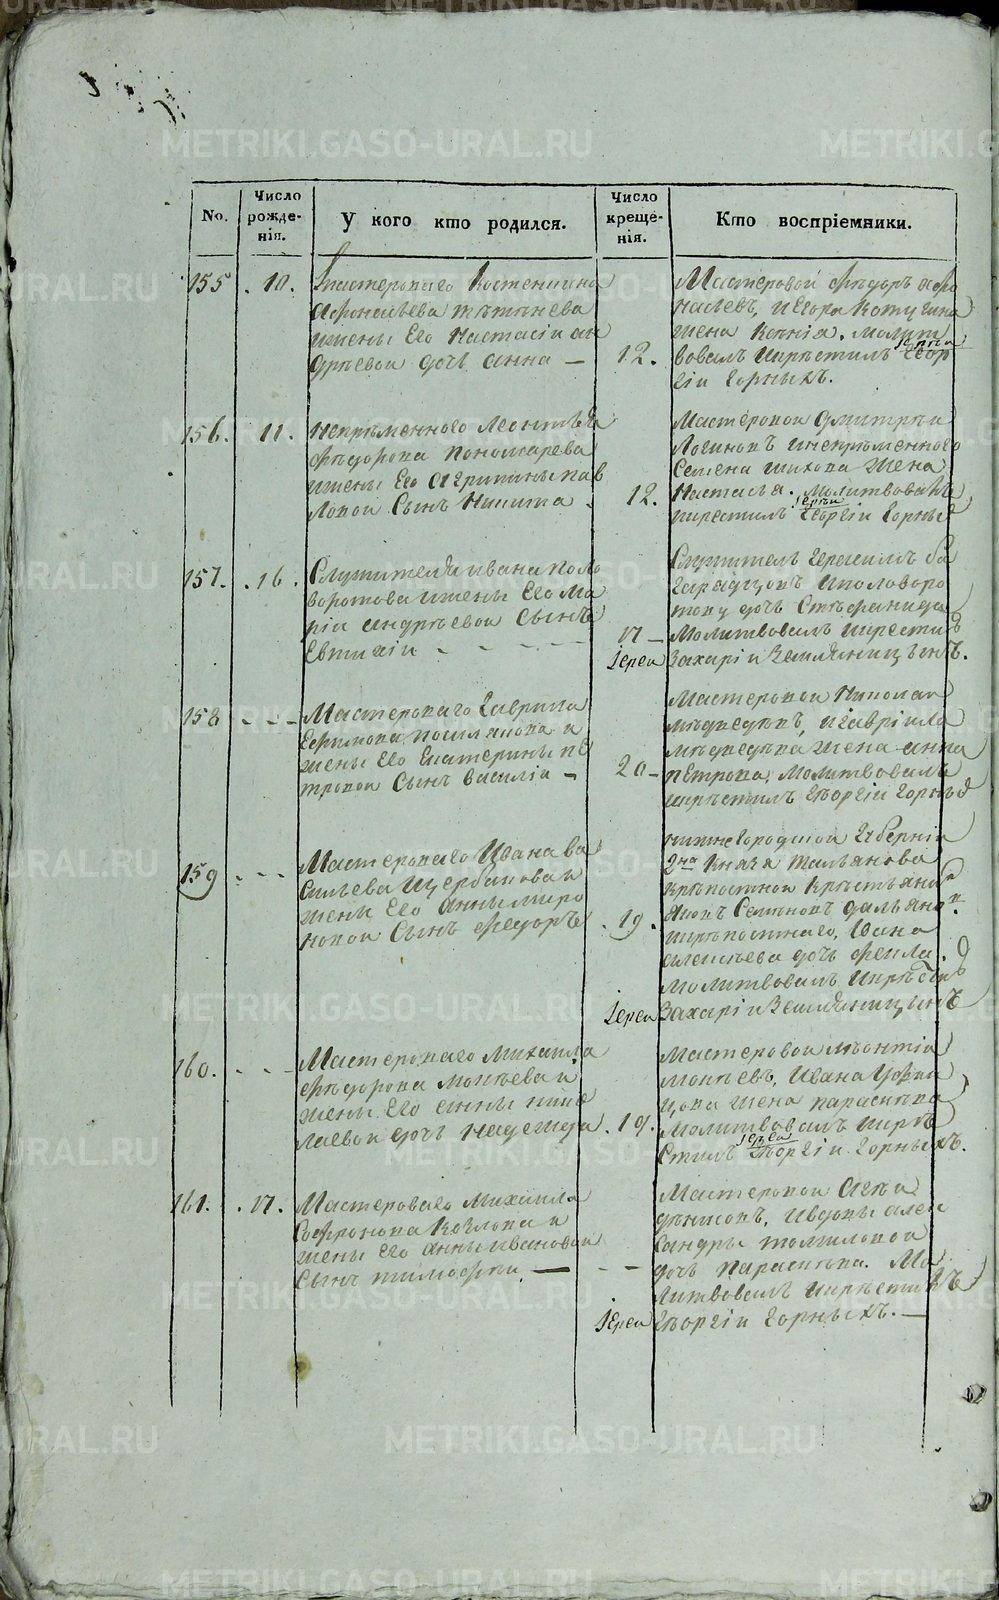 No.
Число рожде-
нія.
У кого кто родился.
Число креще-
нія.
Кто воспріемники.
155 . 10.
Мастероваго Костентина
Афонасьева
жены Его Настасіи ан
дреевои дочь анна —
12.
Мастеровои Фѣдоръ Афо
насьевъ, и Егора
жена Ксѣнія. молит
вовалъ икрѣстилъ Іереи Геор
гіи Горныхъ.
156. 11.
Непрѣменного Леонтья
Фѣдорова пономарева
ижены Его Агрипины пав
ловои Сынъ Никита.
12.
Мастеровои Дмитреи
Логиновъ инепрѣменного
Семена шихова жена
Настасья. молитвовалъ
икрестилъ Іереи Георгіи Горныхъ
157. . 16.
Служителя ивана поло
воротова ижены Его Ма
ріи андрѣевои Сынъ
Евтихіи - - - -
17 —
Іереи
Служитель Герасимъ
иполоворо
тову дочь Стефанида
Молитвовалъ икрести
Захаріи Земляницынъ.
158 - - -
Мастероваго Гаврила
Ефимова и
жены Его Екатерины пе
тровои Сынъ василіи —
20 —
Мастеровои Николаи
мѣдведевъ, игавріила
мѣдведева жена анна
пѣтрова. Молитвовалъ
икрѣстилъ Гѣоргіи Горных
159 - - -
Мастероваго Ивана ва
сильева Щербакова и
жены Его Анны миро
новои Сынъ Федоръ
. 19.
Іереи
нижнегородскои Губерніи
2на Князя
крѣпостнои Крѣстьянин
Яковъ Семѣновъ дальнои
икрѣпостнаго, Ивана
алексѣева дочь Фекла.
молитвовалъ икрѣстил
Захаріи Земляницынъ
160. - - -
Мастероваго Михаила
фѣдорова мокѣева и
жены Его анны нико
лаевои дочь Надежда
. 19.
Мастеровои лѣонтіи
мокѣевъ, Ивана
жена парасковья
Молитвовалъ икрѣ
стилъ Іереи Гѣоргіи Горныхъ.
161. . 17.
Мастероваго Михаила
Софронова Козлова и
жены Его Анны ивановои
Сынъ тимофѣи —
- -
Іереи
Мастеровои
дѣнисовъ, ивдовы алек
сандры томиловои
дочь парасковья. Мо
литвовалъ икрѣстилъ
Гѣоргіи Горныхъ. —
METRIKI.GASO-URAL.RU